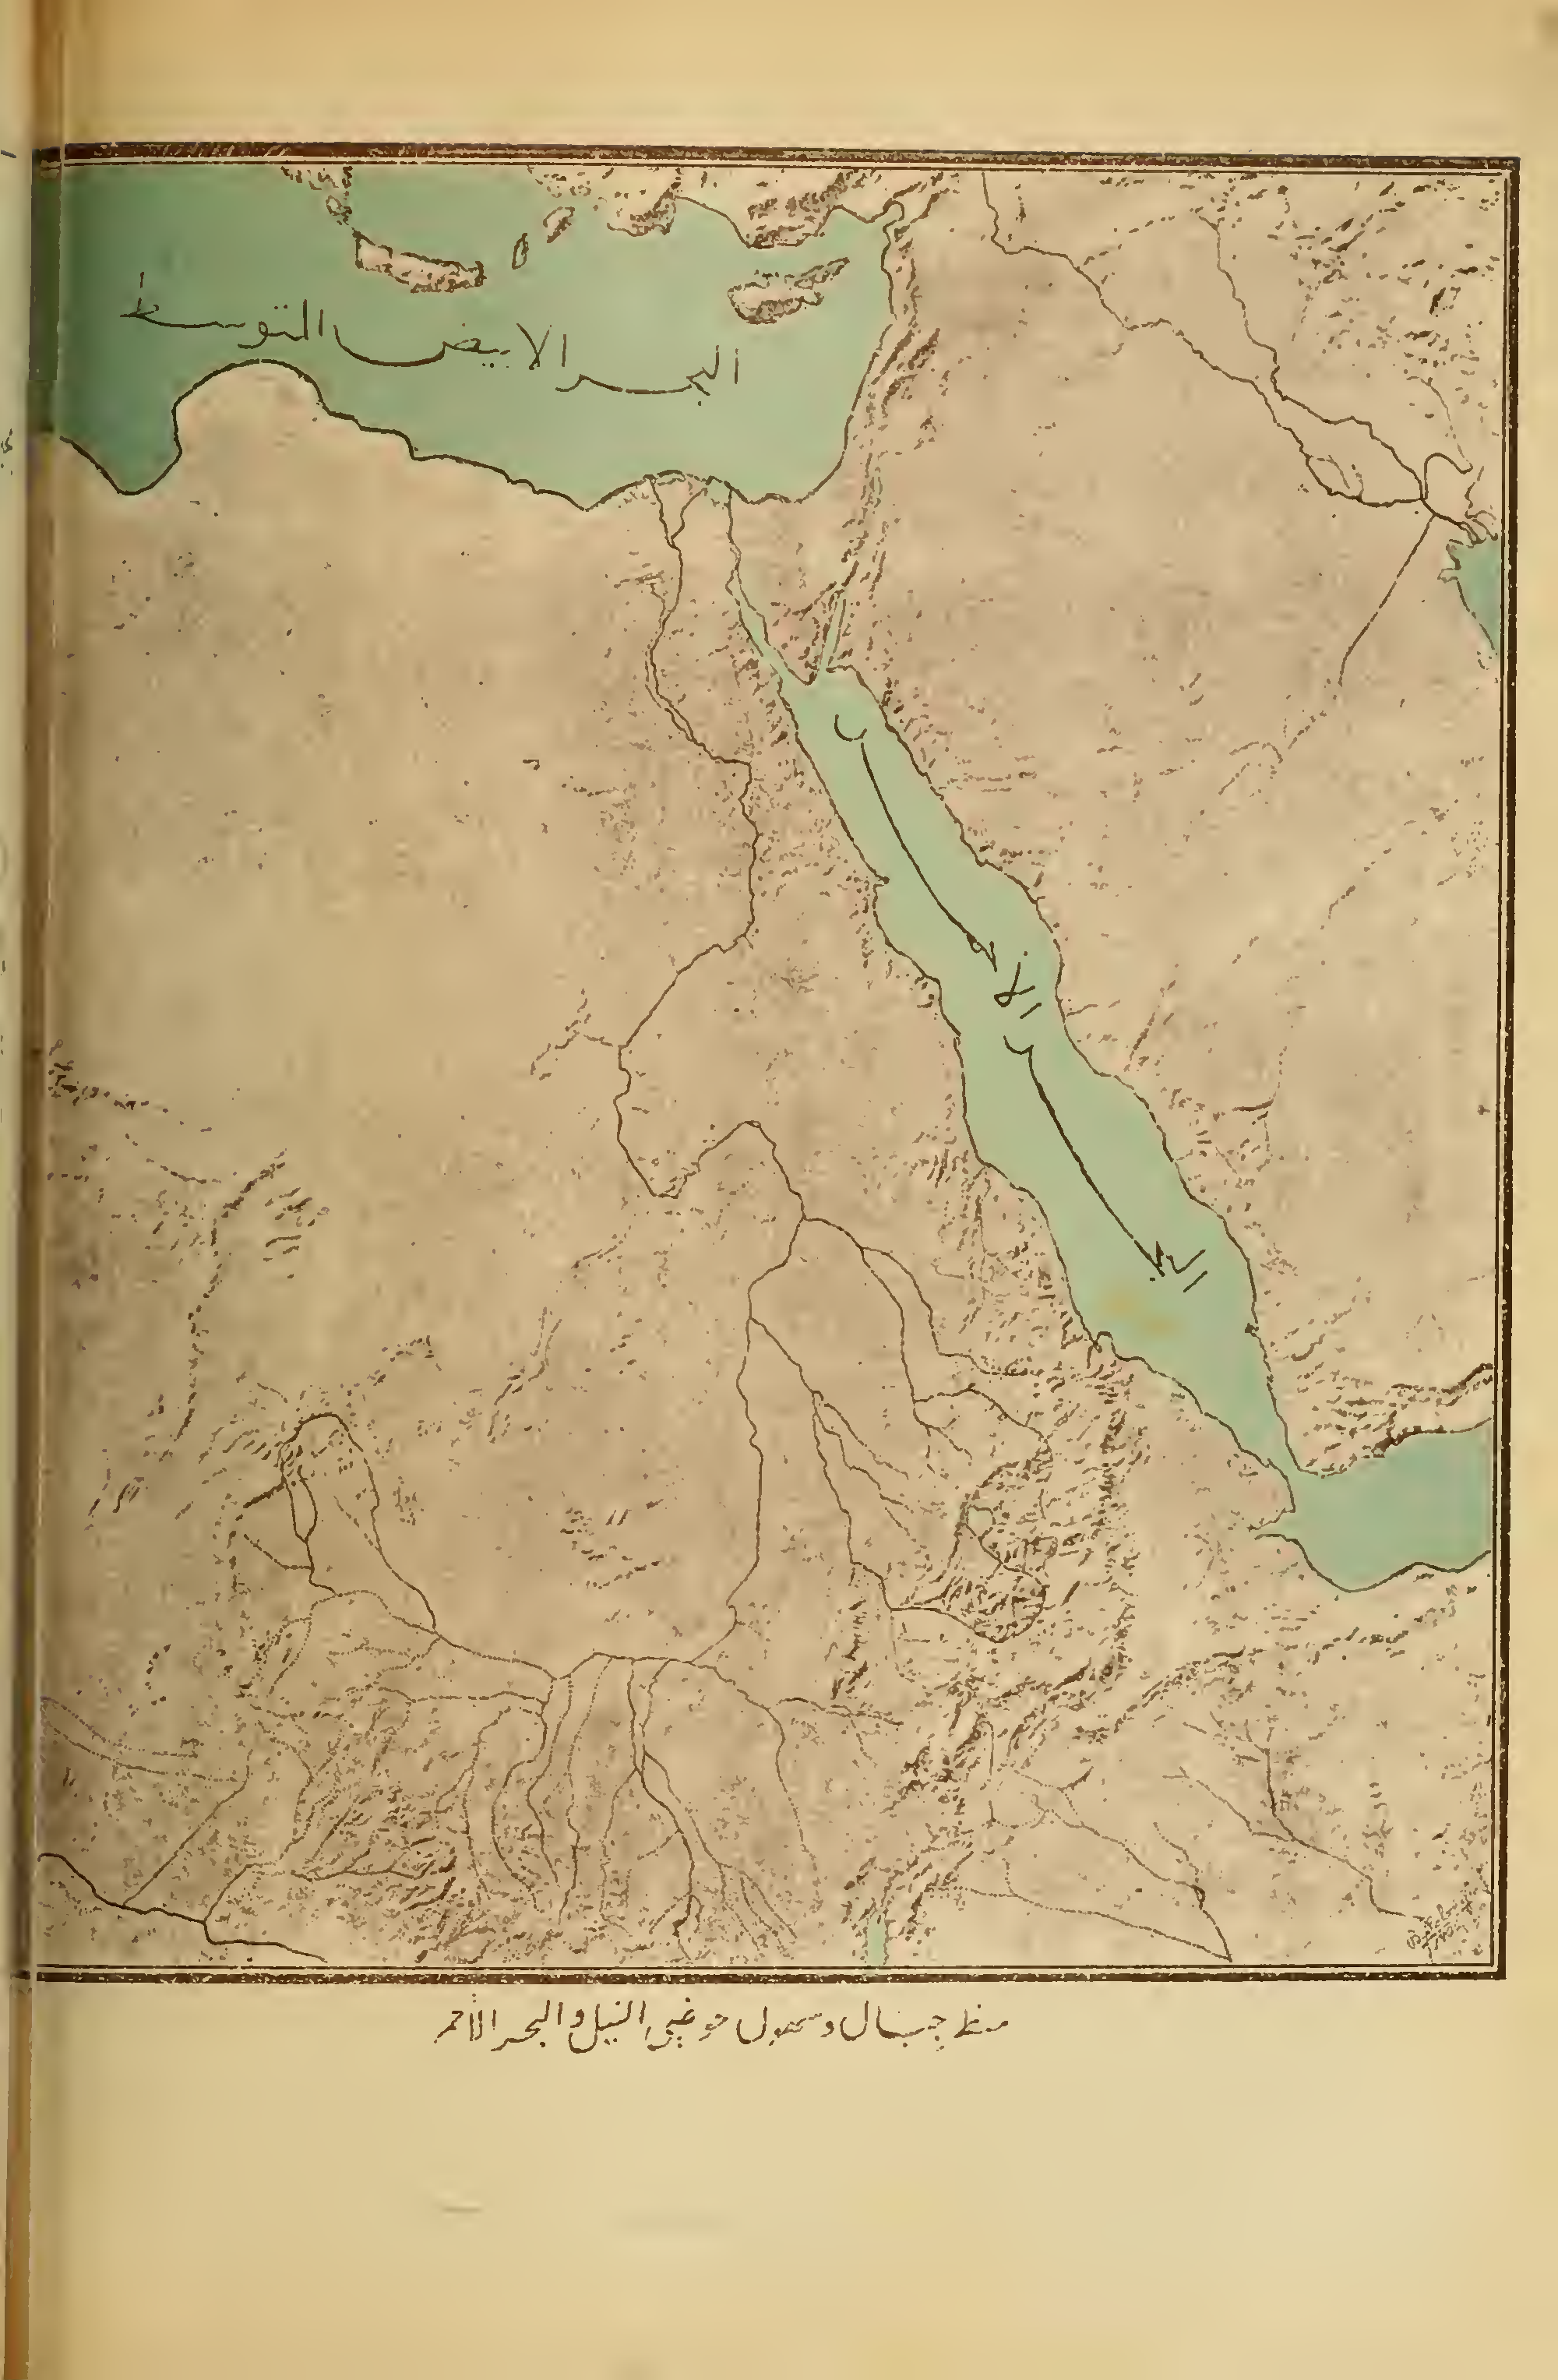 البحر الابيض المتوسط
البحر الاحمر
منظر جبال وسهول حوضي النيل والبحر الأحمر